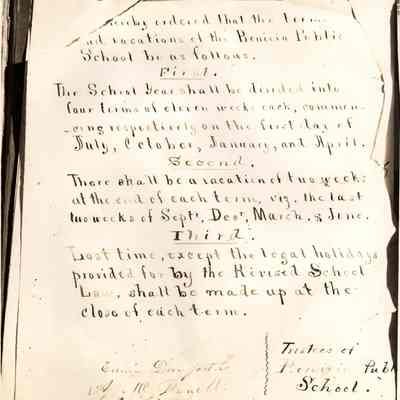 hereby ordered that the terms
and vacations of the Benicia Public
School be as follows.
First.
The School Year shall be divided into
four terms of eleven weeks each, commen-
-cing respectively on the first day of
July, October, January, and April.
Second.
There shall be a vacation of two weeks
at the end of each term, viz, the last
two weeks of Sept, Decr, March, & June.
Third.
Lost time, except the legal holidays
provided for by the Revised School
Law, shall be made up at the
close of each term.
Trustees of
Benicia Publ
School.